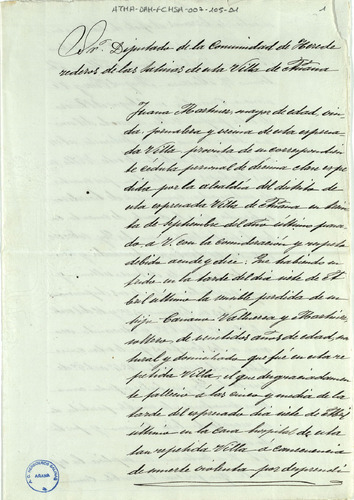 ATHA-DAH-FCHSA-007-105-01
1
Sr. Diputado de la Comunidad de Herede
rederos de las Salinas de esta Villa de Añana
Juana Martinez, mayor de edad, viu
da, jornalera y vecina de esta expresa
da Villa provista de su correspondien
te cédula personal de décima clase expe
dida por la alcaldia del distrito de
esta expresada Villa de Añana en trein
ta de Septiembre del año último pasa
do, á V. con la consideracion y respeto
debido acude y dice: Que habiendo su
frido en la tarde del dia siete de
último la sensible perdida de su
hijo Casiano Valluerca y Martinez
soltero, de veintidos años de edad, na
tural y domiciliado que fué en esta re
petida Villa, el que desgraciadamen
te falleció á las cinco y media de la
tarde del expresado dia siete de
último en la casa hospital de esta
tan repetida Villa á consecuencia
de muerte violenta por desprendi
AÑANA